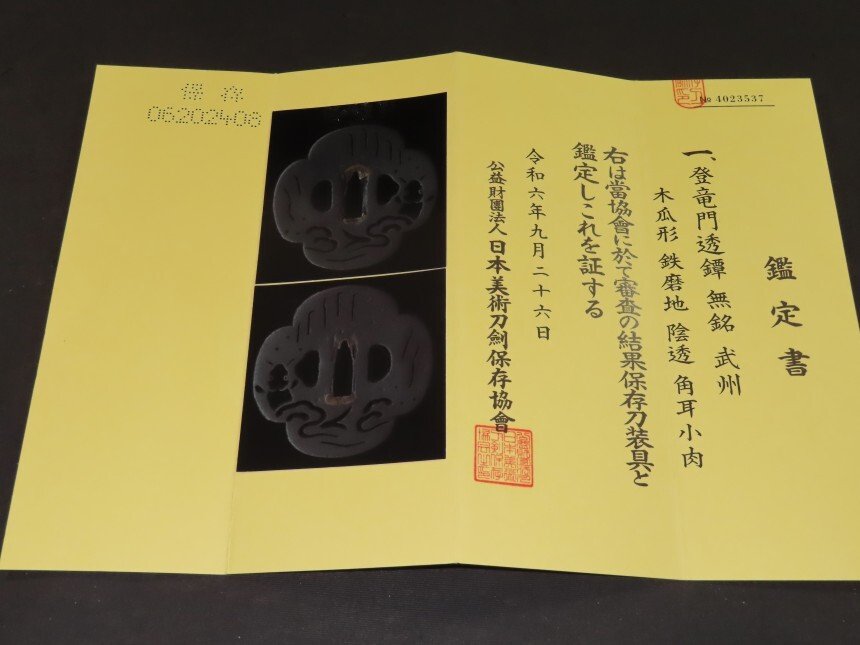 № 4023537
鑑定書
一、登竜門透鐔 無銘 武州
木瓜形 鉄磨地 陰透 角耳小肉
右は當協會に於て審査の結果保存刀装具と
鑑定しこれを証する
令和六年九月二十六日
公益財團法人 日本美術刀劍保存協會
保存
06202408